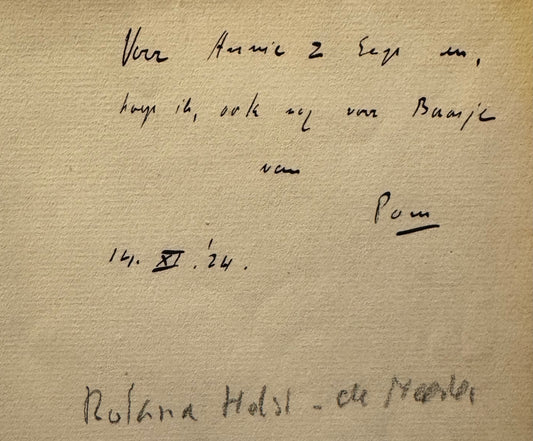 Voor Annie & Eep en,
hoop ik, ook nog voor Baasje
van
Pom
14. XI. '24.
Rolana Holst - de Meester